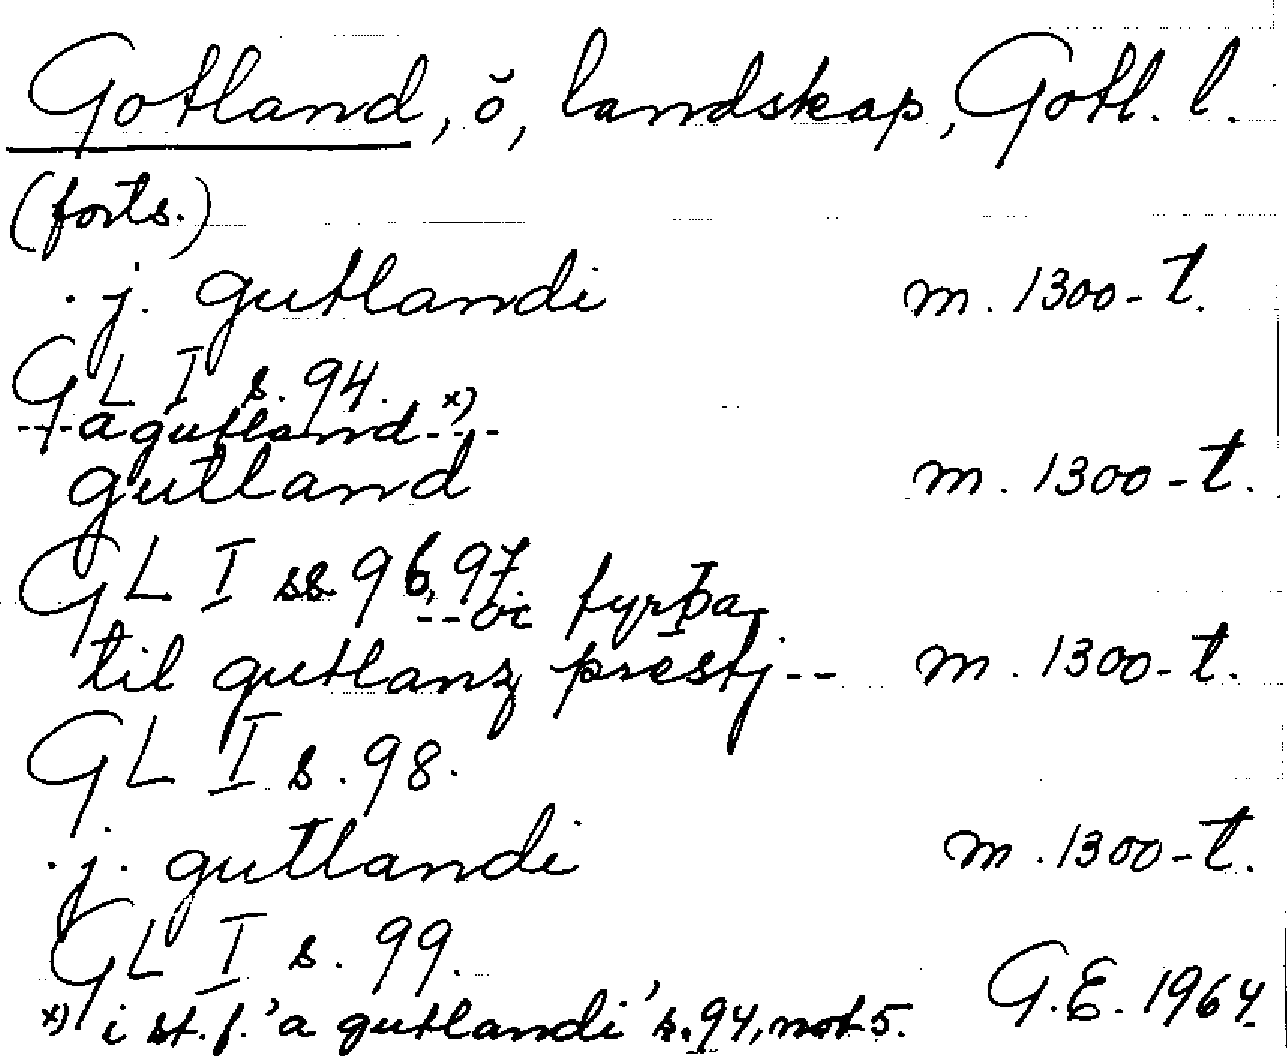 Gotland, ö, landskap, Gotl. l.
(forts.)
.j. gutlandi m. 1300-t.
GL I s. 94.
--- a gutland x) ---
gutland m. 1300-t.
GL I ss 96, 97.
-- oc fyrþa
til gutlanz prestj -- m. 1300-t.
GL I s. 98.
.j. gutlandi m. 1300-t.
GL I s. 99.
G.E. 1964
x) i st. f. 'a gutlandi' s. 94, not 5.